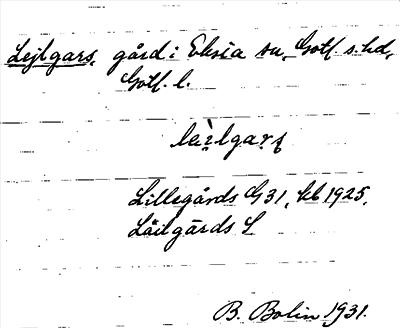 Lejlgars, gård i Eksta sn, Gotl. s. hd,
Gotl. l.
Lillegårds G 31, kb 1925,
Läilgårds L
B. Bolin 1931.